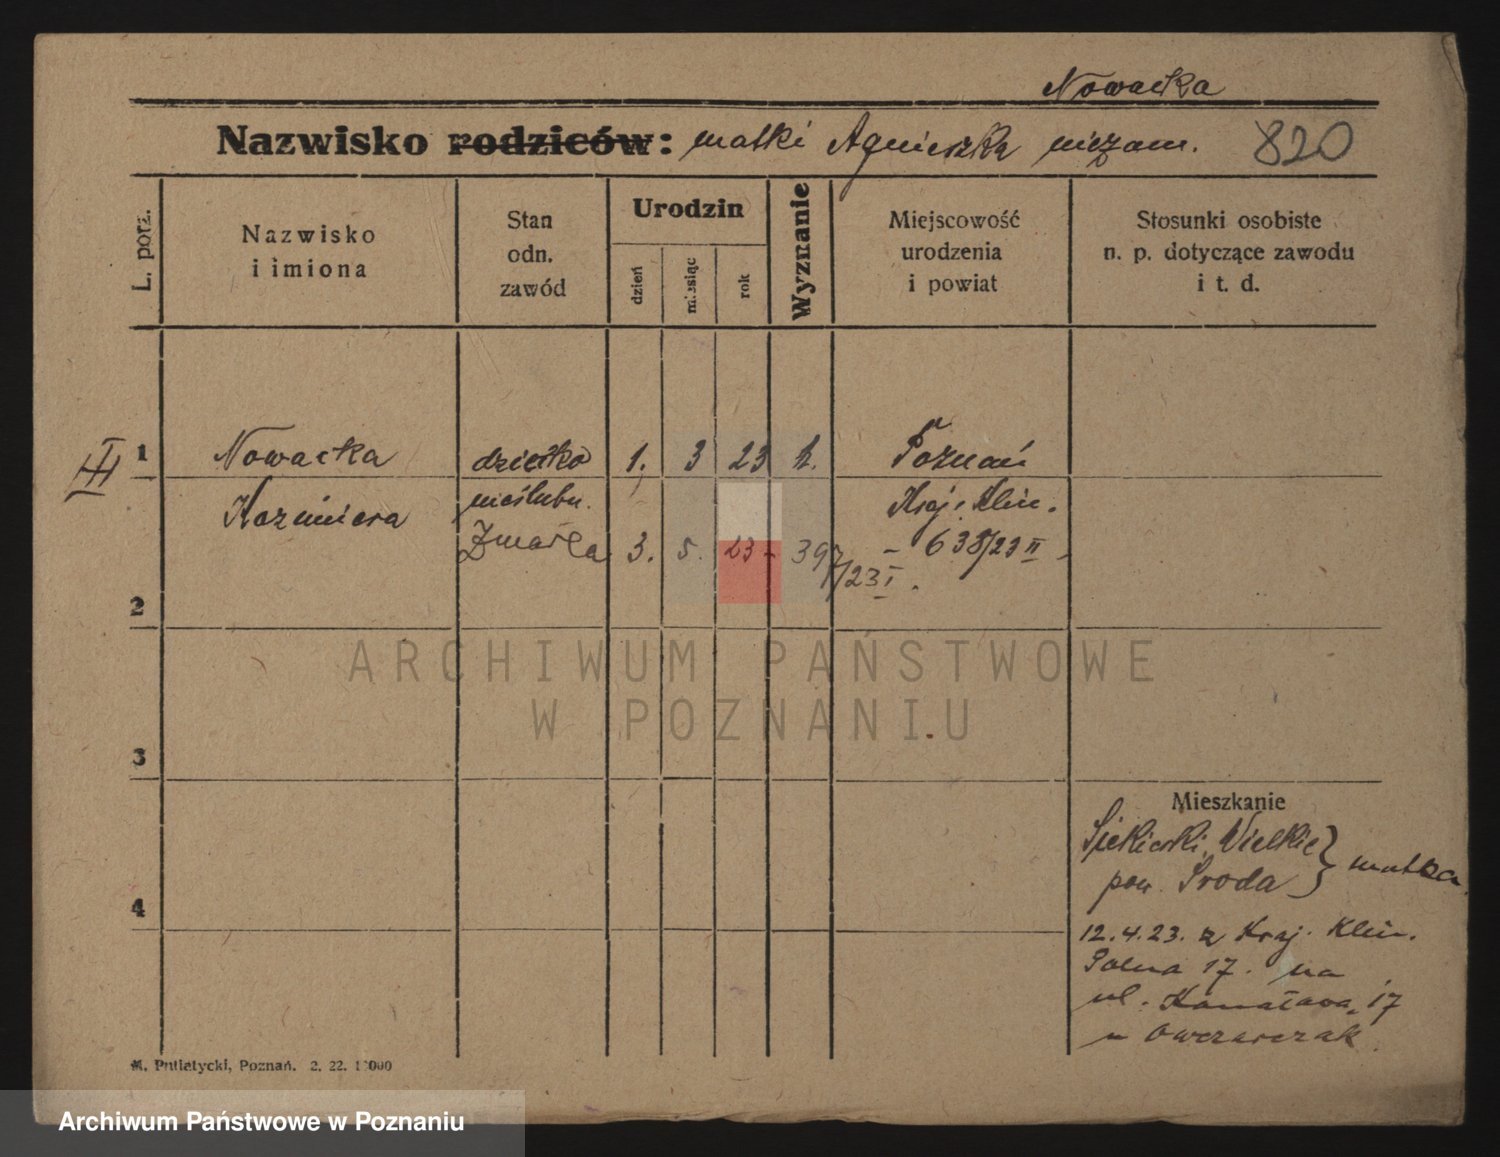 Nowacka
Nazwisko rodziców: matki Agnieszka niezam. 820
L. porz.
Nazwisko
i imiona
Stan
odn.
zawód
Urodzin
dzień
miesiąc
rok
Wyznanie
Miejscowość
urodzenia
i powiat
Stosunki osobiste
n. p. dotyczące zawodu
i t. d.
III 1 Nowacka dziecko 1. 3 23 k. Poznań
Kazimiera nieślubn. Kraj. Klin.
Zmarła 3. 5. 23 - 397/23 I. - 638/23 II -
2
ARCHIWUM PAŃSTWOWE
W POZNANIU
3
Mieszkanie
Siekierki Wielkie } matka
pow. Środa
4
12.4.23. z Kraj. Klin.
Polna 17. na
ul. Kanałowa 17
u Owczarczak
M. Putiatycki, Poznań. 2. 22. 1000
Archiwum Państwowe w Poznaniu